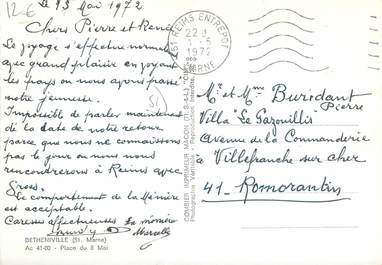 12-6
Le 13 Mai 1972
Chers Pierre et René
Le voyage s'effectue normalement
avec grand plaisir en voyant
les pays ou nous avons passé
notre jeunesse.
Impossible de parler maintenant
de la date de notre retour
parce que nous ne connaissons
pas le jour ou nous nous
rencontrerons à Reims avec
Le comportement de la Mémère
est acceptable.
Caresses affectueuses La mémère
Marcelle
BETHENIVILLE (51. Marne)
Ac 41-00 - Place du 8 Mai
51
COMBIER IMPRIMEUR MACON (S.-&-L.) "CIM"
Photographie Véritable - Reproduction Interdite
51 REIMS ENTREPOT
22H
1972
MARNE
Mr et Mme Buridant
Pierre
Villa "Le Gazouillis
avenue de la Commanderie
à Villefranche sur cher
41- Romorantin